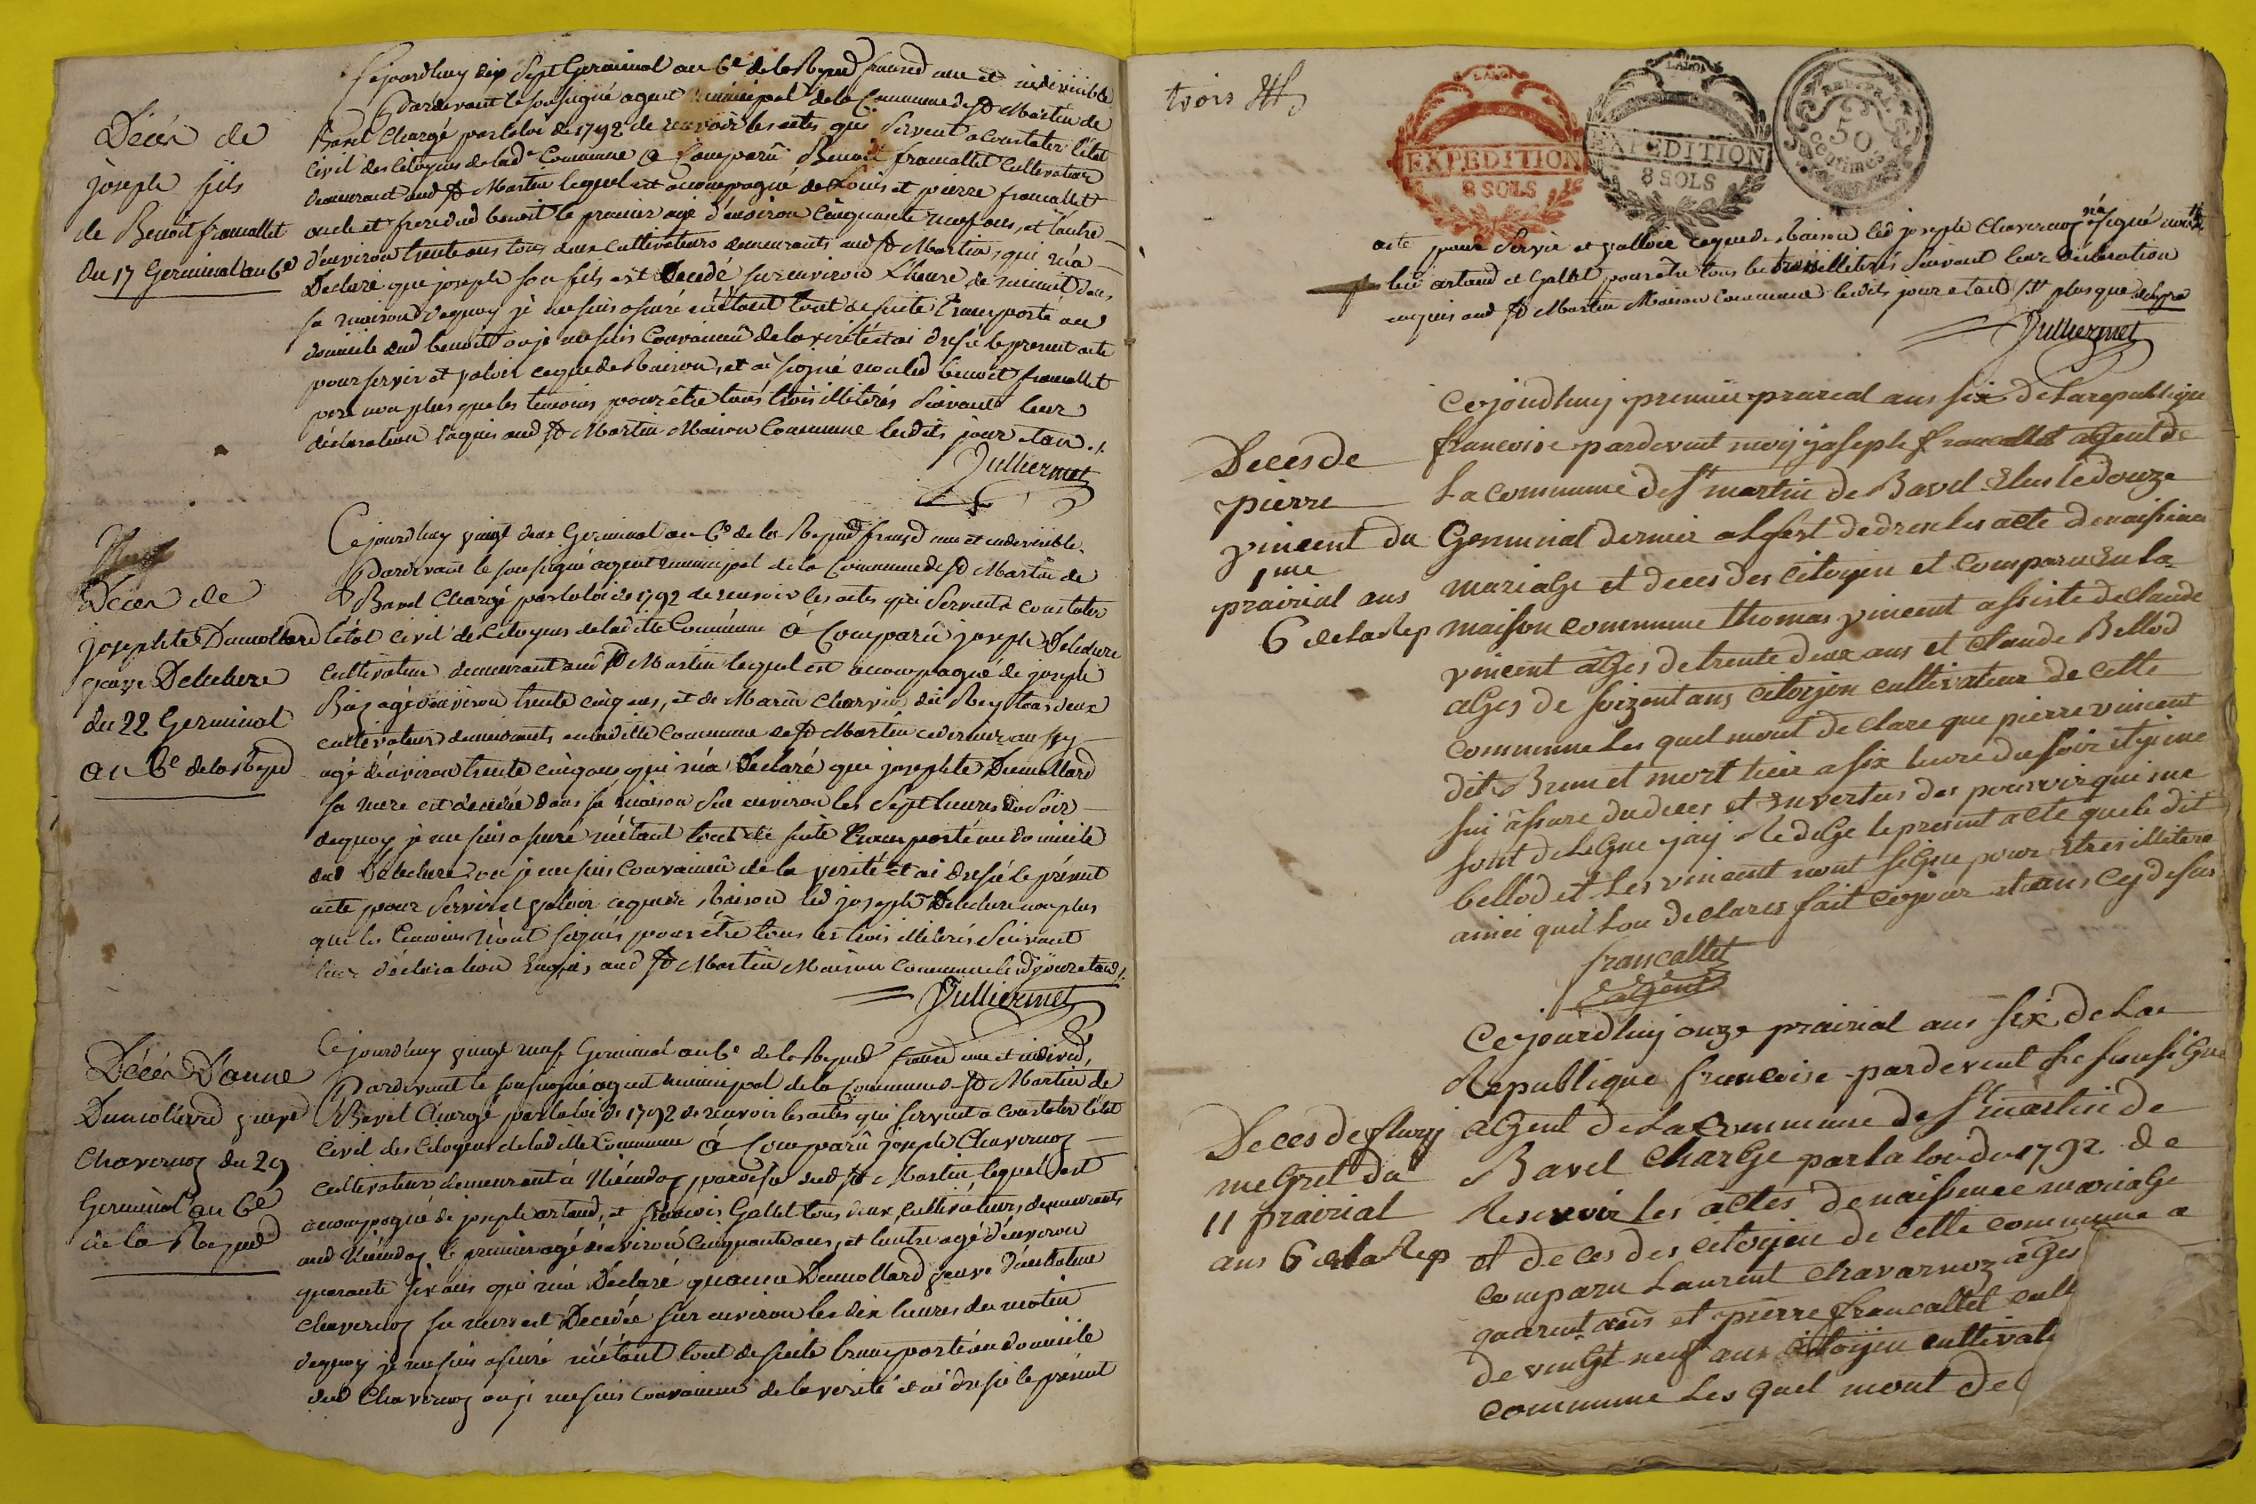 Décès de
joseph fils
de Benoit francallet
du 17 Germinal an 6e
Cejourdhuy dix Sept Germinal an 6e de la Repud francd une et indivisible
Pardevant le soussigné agent municipal de la Commune de St Martin de
Bavel Chargé par la loi de 1792 de recevoir les actes qui servent a Constater l'état
Civil des Citoyens de lade Commune a Comparû Benoit francallet Cultivateur
demeurant aud St Martin lequel est acompagné de Louis et pierre francallet
oncle et frere dud benoit le premier agé d'environ Cinquante neuf ans, et l'autre
d'environ trente ans tous deux cultivateurs demeurants aud St Martin, qui m'a
Déclaré que joseph son fils est Decedé sur environ l'heure de minuit dans
sa maison dequoy je me suis assuré m'étant tout de suite transporté au
domicile dud benoit ou je me suis Convaincû de la vérité et ai dressé le present acte
pour servir et valoir ceque de Raison, et a signé non led benoit francallet
pere non plus que les temoins pour être tous trois illiterés suivant leur
déclaration Requis aud St Martin Maison Commune lesdits jour et an ./.
Jullierme
Décès de
josephte Dumollard
veuve Delechere
du 22 Germinal
an 6e de la Repud
Cejourdhuy vingt deux Germinal an 6e de la Repud francd une et indivisible
Pardevant le soussigné agent municipal de la Commune de St Martin de
Bavel Chargé par la loi de 1792 de recevoir les actes qui Servent a constater
l'état Civil des Citoyens de ladite Commune a Comparû joseph Delechere
Cultivateur demeurant aud St Martin lequel est acompagné de joseph
agé d'environ trente cinq ans, et de Marin Charvin dit Rey tous deux
cultivateurs demeurants en ladite Commune de St Martin ce dernier aussy
agé d'environ trente cinq ans qui m'a Déclaré que josephte Dumollard
sa mere est decedée dans sa maison sur environ les Sept heures du Soir
dequoy je me suis assuré m'étant tout de suite transporté au domicile
dud Delechere ou je me suis convaincû de la verité et ai dressé le présent
acte pour Servir et valoir ceque de Raison led joseph Delechere non plus
que les temoins n'ont signés pour être tous les trois illiterés Suivant
leur déclaration Enquis aud St Martin Maison Commune lesd jour et an ./.
Jullierme
Décès D'anne
Dumollard veuve
Chavernoz du 29
Germinal an 6e
de la Repud
Cejourdhuy vingt neuf Germinal an 6e de la Repud francd une et individ,
Pardevant le soussigné agent municipal de la Commune de St Martin de
Bavel Chargé par la loi de 1792 de recevoir les actes qui servent a constater l'état
Civil des Citoyens de ladite Commune a Comparû joseph Chavernoz
cultivateur demeurant à paroisse dud St Martin, lequel est
acompagné de joseph artaud, et françois Gallet tous deux cultivateurs demeurants
aud le premier agé d'environ Cinquante ans, et l'autre agé d'environ
quarante six ans qui m'a Déclaré qu'anne Dumollard veuve d'anthelme
Chavernoz sa mere est Decedée sur environ les dix heures du matin
dequoy je me suis assuré m'étant tout de suite transporté au domicile
dud Chavernoz ou je me suis convaincu de la verité et ai dressé le présent
trois
LA LOI
EXPEDITION
8 SOLS
LA LOI
EXPEDITION
8 SOLS
50
Centimes
acte pour Servir et valloir ceque de Raison led joseph Chavernoz n'a signé
artaud et Gallet pour etre tous les trois illiterés suivant leur déclaration
enquis aud St Martin Maison Commune lesdits jour et an
Jullierme
Deces de
pierre
vincent du
1me
prairial ans
6 de la Rep
Cejourdhuij premier prareal ans six de La republique
francoise pardevant moij joseph francallet agent de
La commune de St martin de Bavel Elus le douze
Germinal dernier alfest de dreser les acte denaissance
mariage et deces des citoyen et comparu En la
maison commune thomas vincent assiste de claude
vincent âges de trente deux ans et claude Bellod
ages de soizent ans citoyen cultivateur de cette
commune Les quel mont declare que pierre vincent
dit Brun et mort hier a six heure du soir et je me
sui assure du deces et En vertus des pouvoir qui me
sont delegue jaij redige le present acte que le dit
bellod et les vincent nont signe pour Etres illitere
ainci quil Lon declares fait ce jour et ans cij desus
francallet
agent
Deces de fleury
megret du
11 prairial
ans 6 de la Rep
Cejourdhuij onze prairial ans six de La
Republique francoise pardevent Le sousigne
agent de La commune de St martin de
Bavel charge par la loi du 1792 de
Resevoir les actes denaissence mariage
et deces des citoyen de cette commune a
comparu Laurent chavarnoz âges
quarent ans et pierre francallet
de vingt neuf ans citoyen cultivate
commune Les quel mont de